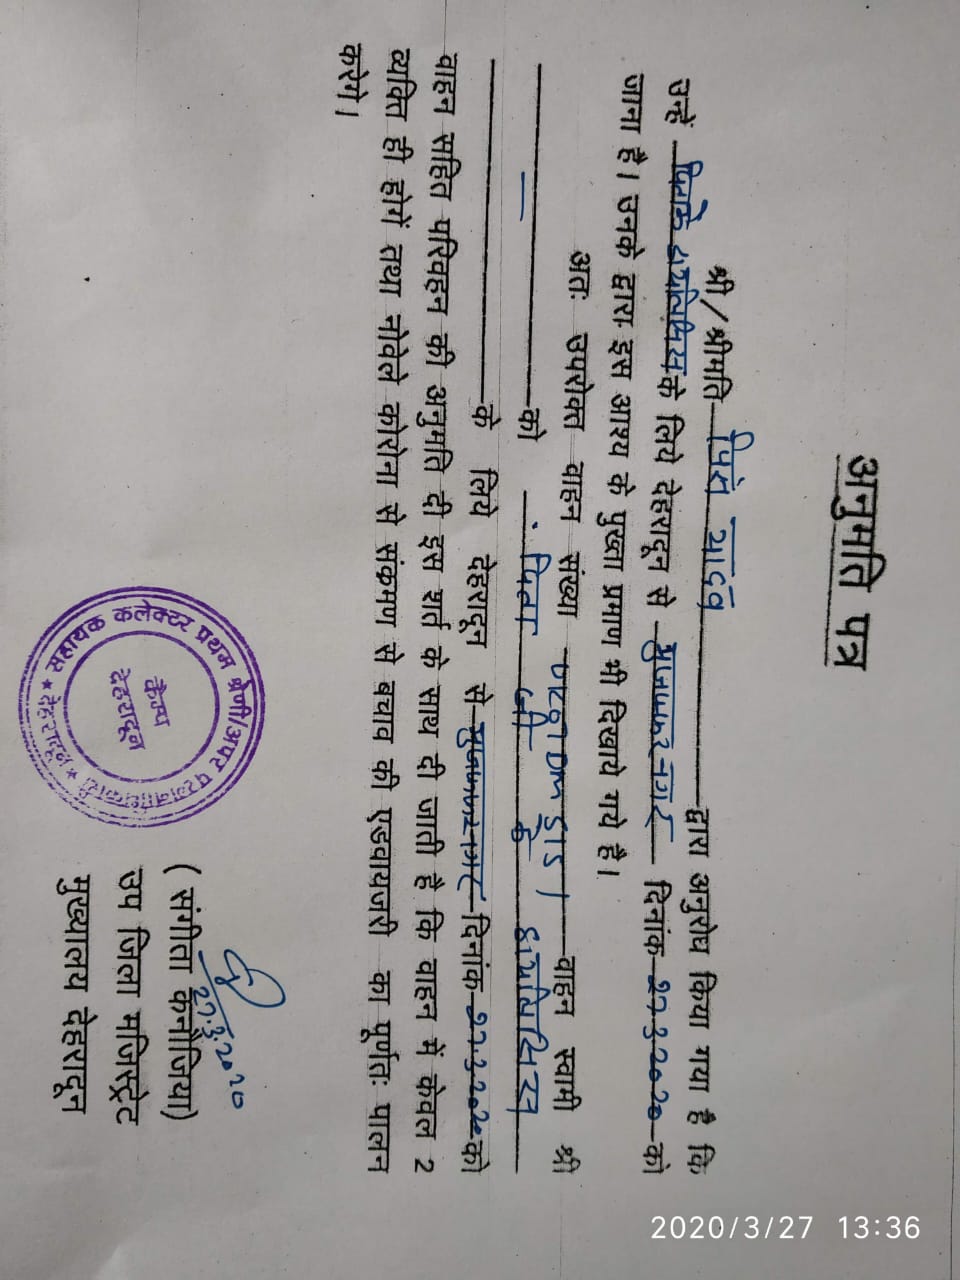 अनुमति पत्र
श्री/श्रीमति पिंटू यादव द्वारा अनुरोध किया गया है कि
उन्हें के लिये देहरादून से मुजफ्फरनगर दिनांक 27.3.2020 को
जाना है। उनके द्वारा इस आश्य के पुख्ता प्रमाण भी दिखाये गये है।
अतः उपरोक्त वाहन संख्या वाहन स्वामी श्री
— को पिता जी के
के लिये देहरादून से मुजफ्फरनगर दिनांक 27.3.2020 को
वाहन सहित परिवहन की अनुमति दी इस शर्त के साथ दी जाती है कि वाहन में केवल 2
व्यक्ति ही होगें तथा नोवेले कोरोना से संकमण से बचाव की एडवायजरी का पूर्णतः पालन
करेगे।
27.3.2020
(संगीता कनौजिया)
उप जिला मजिस्ट्रेट
मुख्यालय देहरादून
सहायक कलेक्टर प्रथम श्रेणी/अपर परगनाधिकारी * देहरादून *
कैम्प
देहरादून
2020/3/27 13:36